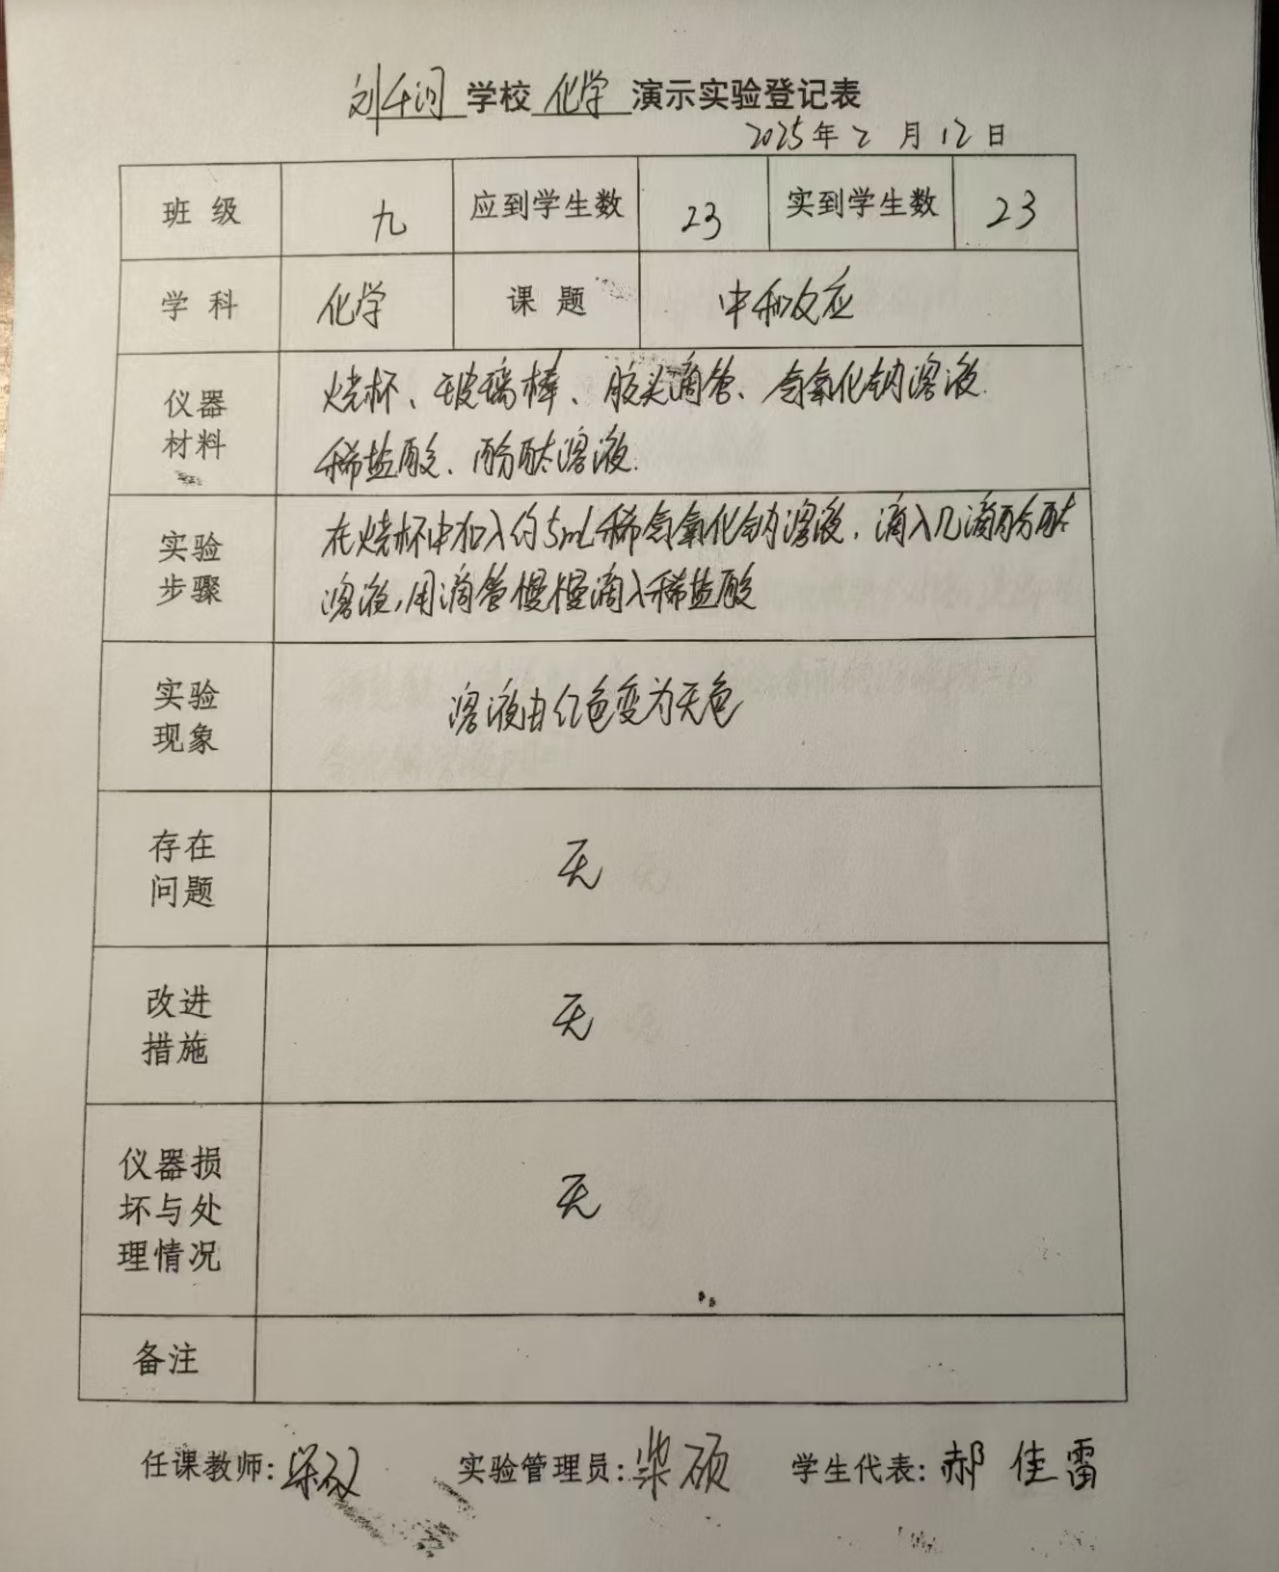 学校 化学 演示实验登记表
2025年2月12日
班级 九 应到学生数 23 实到学生数 23
学科 化学 课题 中和反应
仪器 烧杯、玻璃棒、胶头滴管、氢氧化钠溶液.
材料 稀盐酸、酚酞溶液.
实验 在烧杯中加入约5mL稀氢氧化钠溶液,滴入几滴酚酞
步骤 溶液,用滴管慢慢滴入稀盐酸
实验
现象 溶液由红色变为无色
存在
问题 无
改进
措施 无
仪器损
坏与处 无
理情况
备注
任课教师: 实验管理员:柴硕 学生代表:郝佳雷